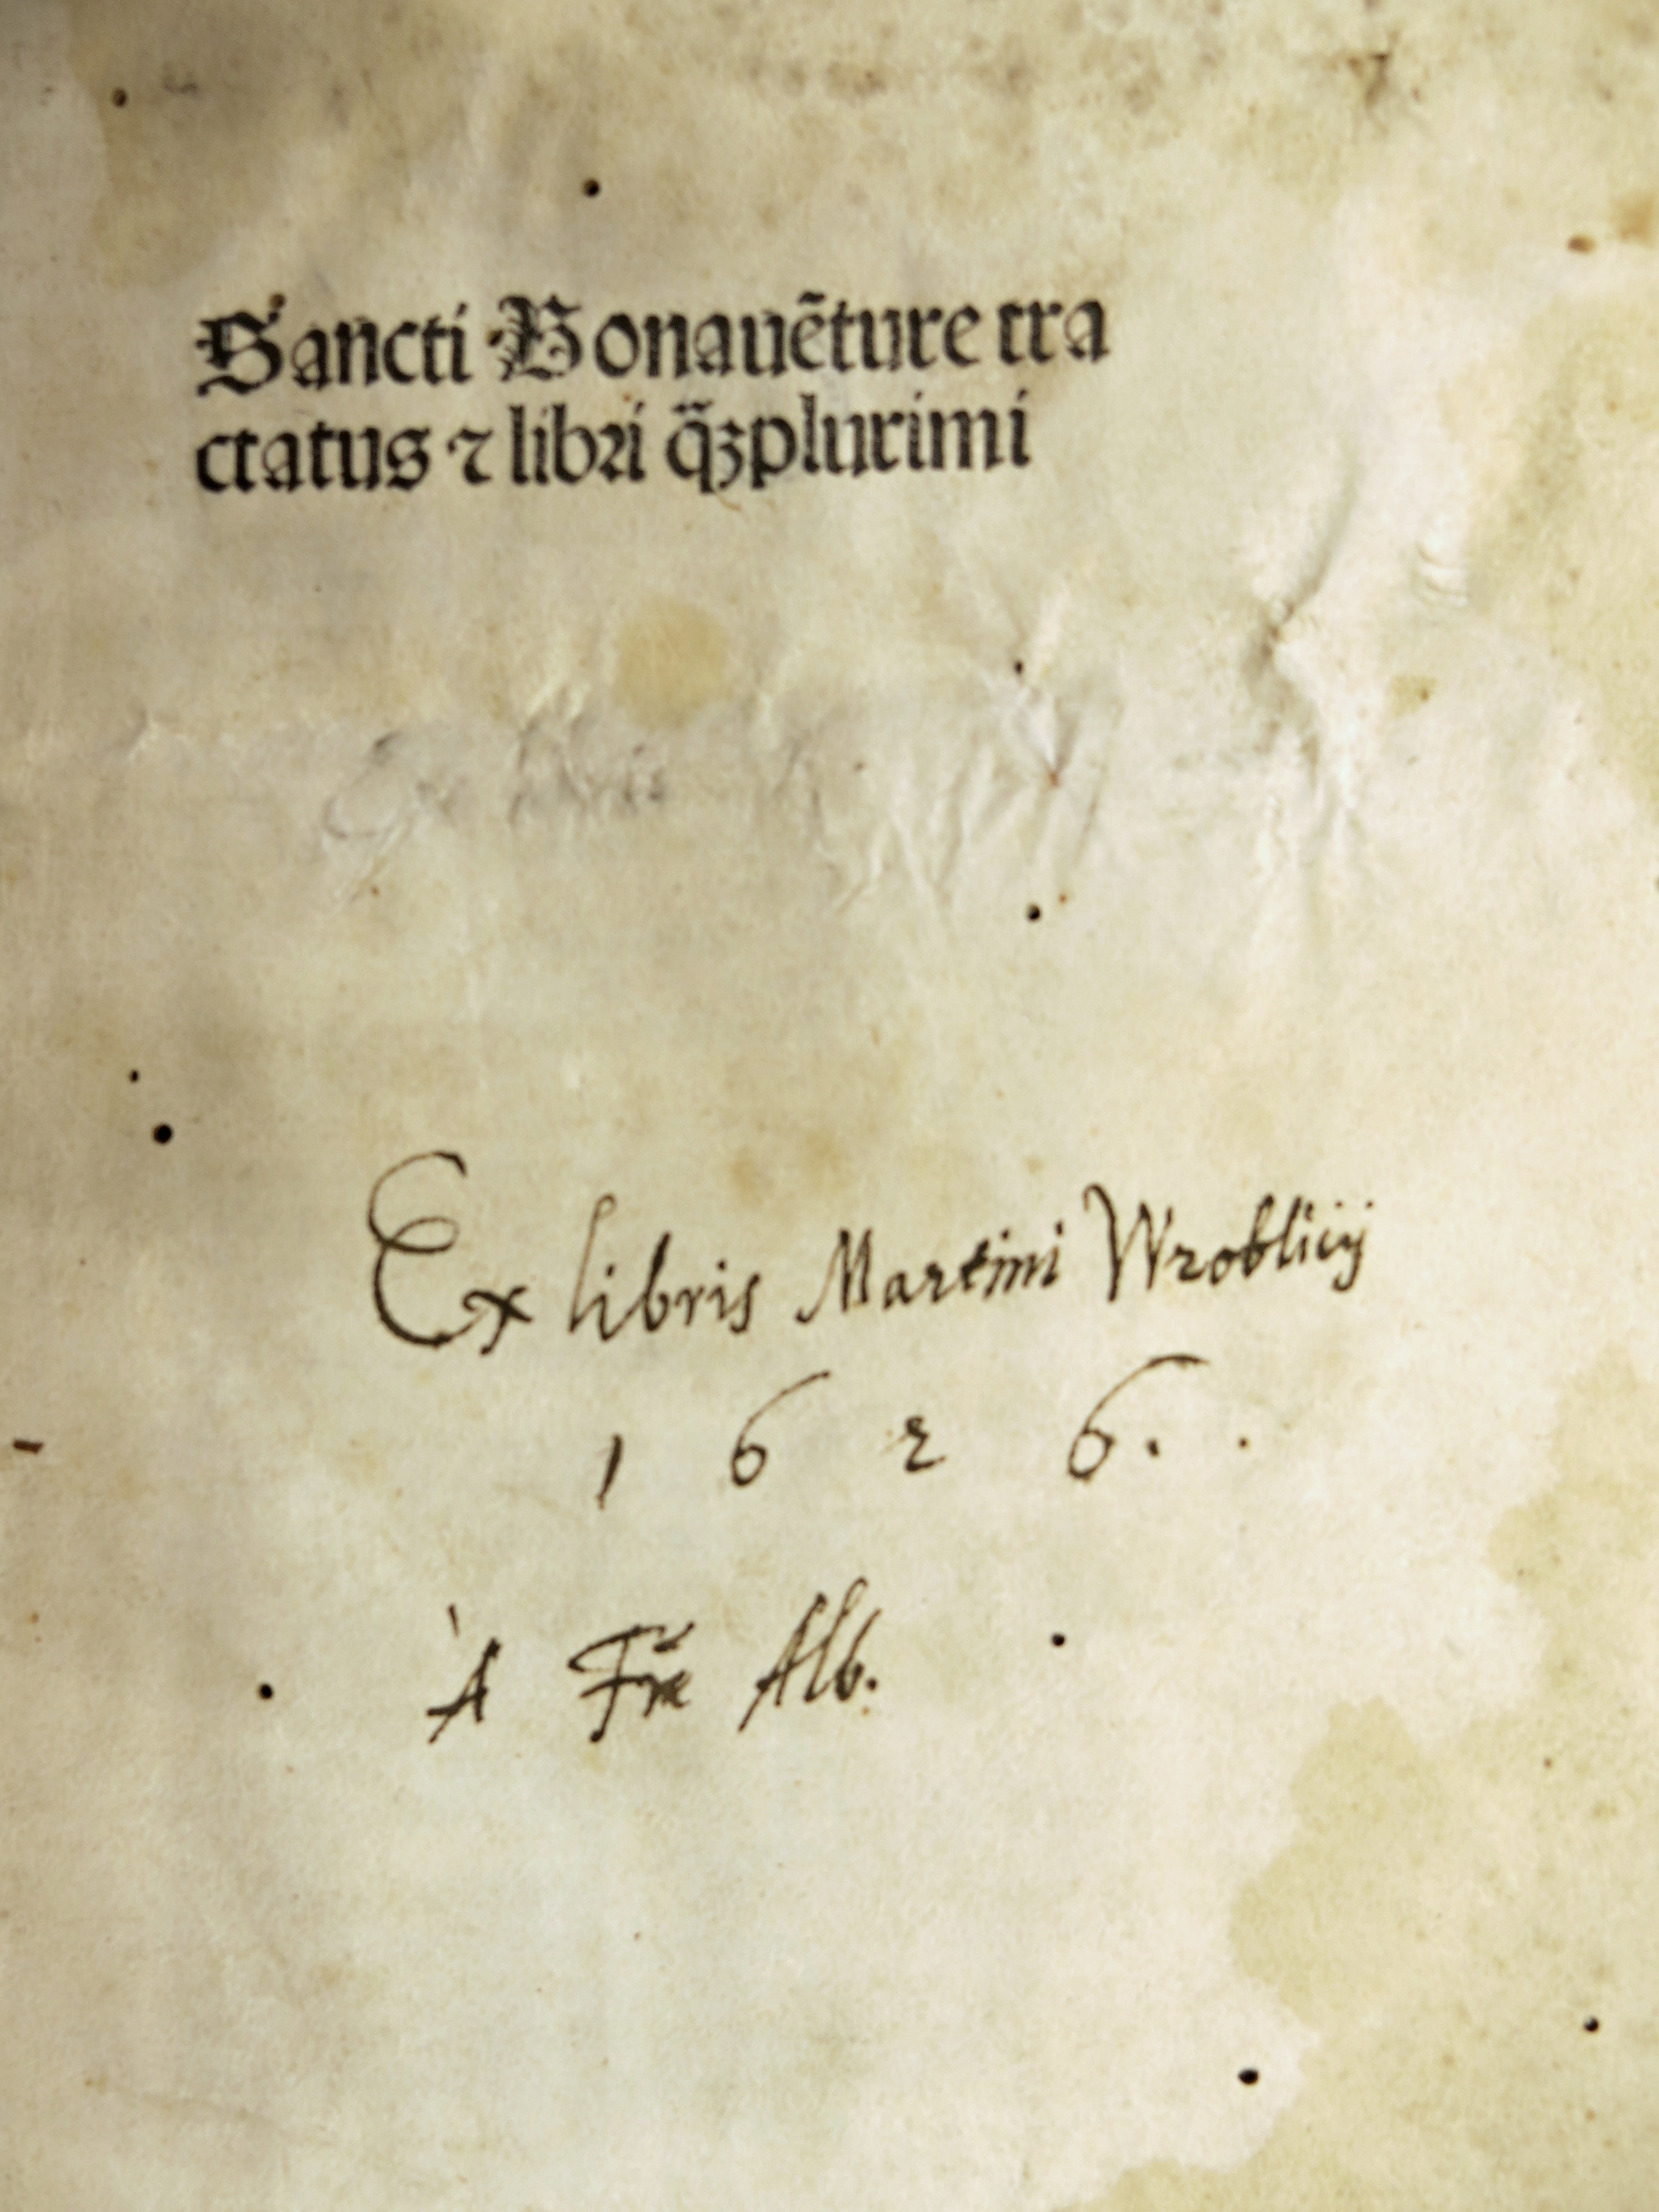 Sancti Bonauẽture tra
ctatus ⁊ libri q̃ꝫplurimi
Ex libris
Ex libris Martini Wroblicij
1 6 2 6 .
A Fr̃e Alb.